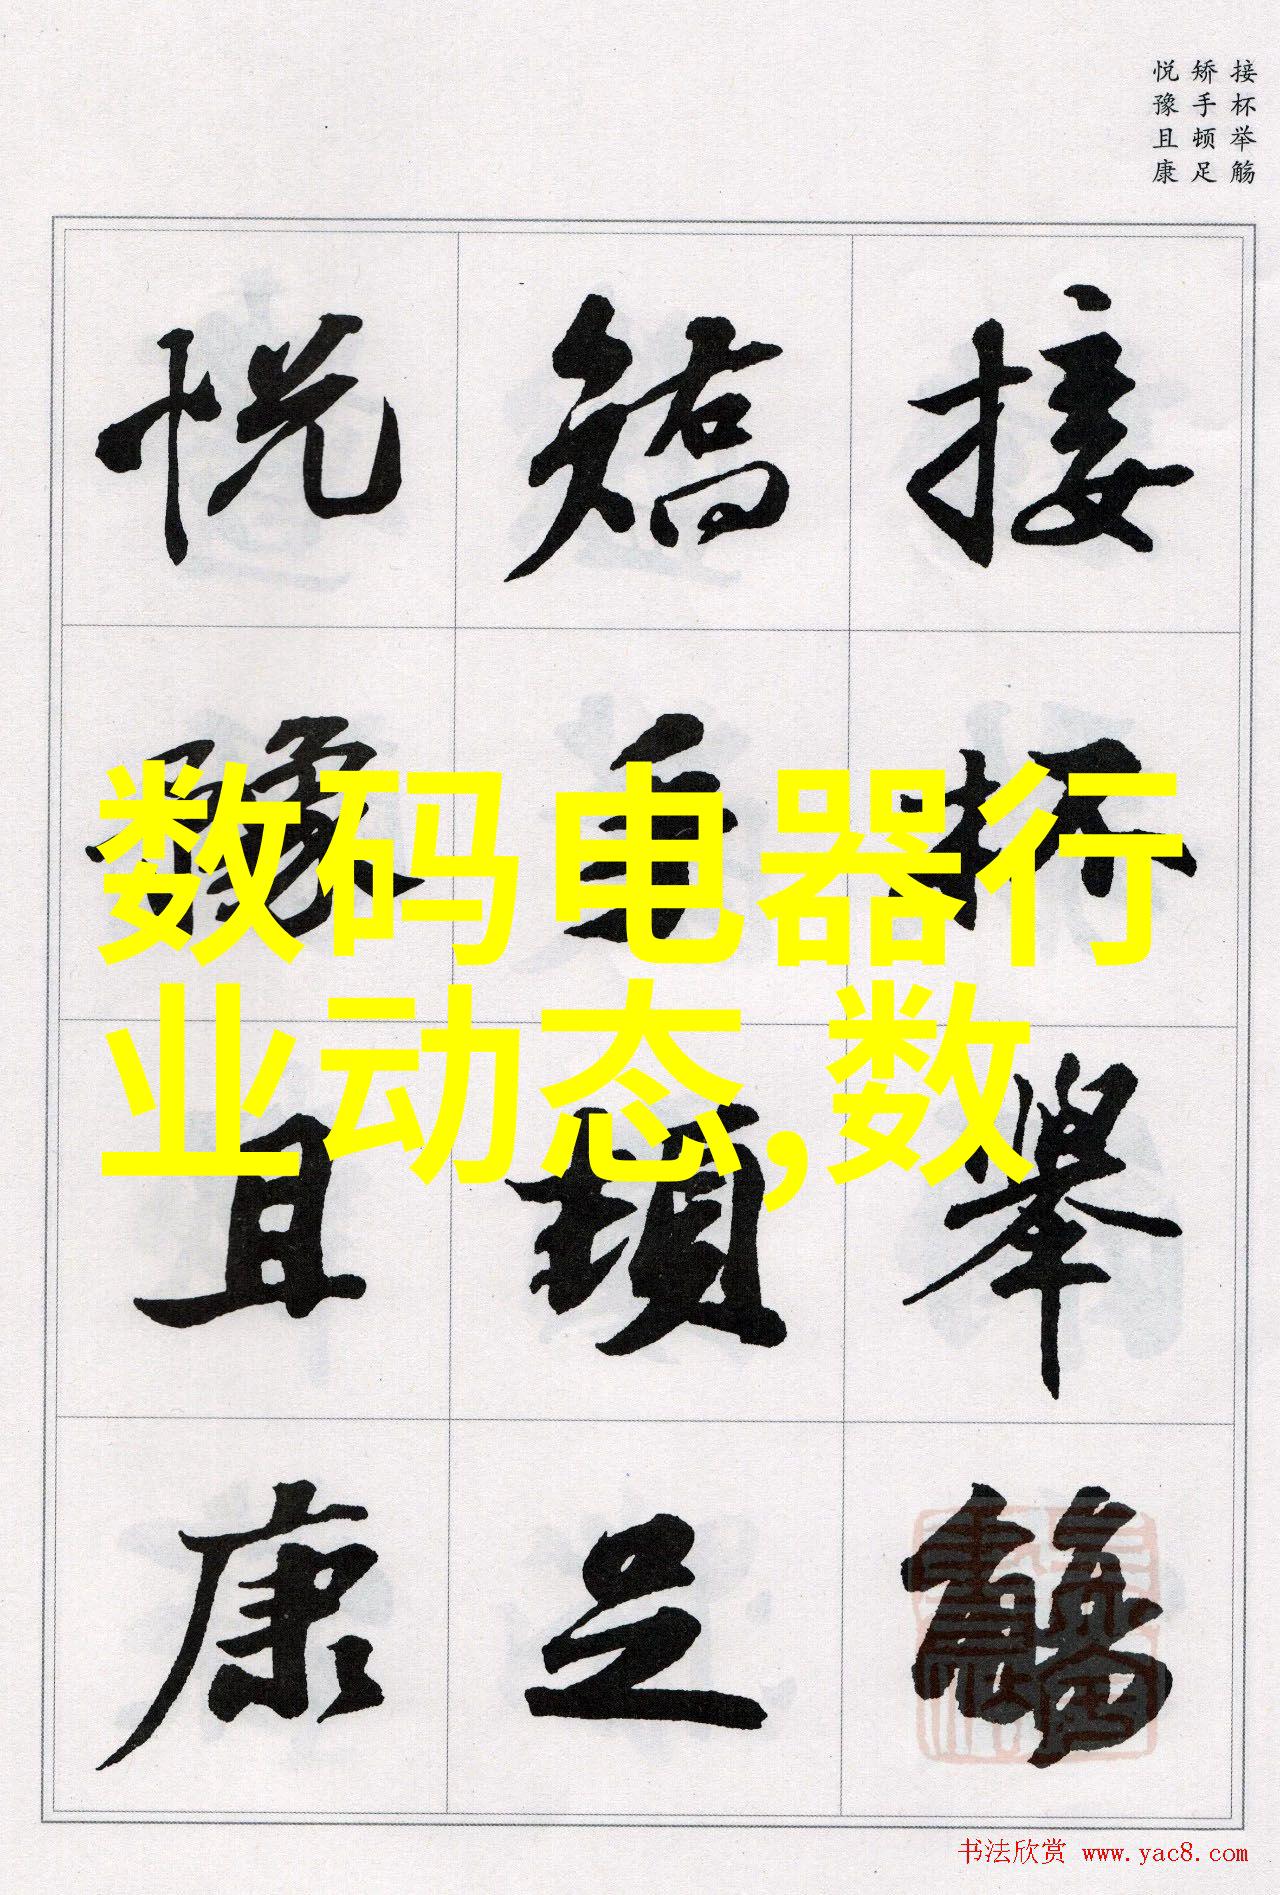 接杯举觞
矫手顿足
悦豫且康
接杯舉觴
矯手頓足
悦豫且康
数码电器行
业动态,数
书法欣赏 www.yac8.com